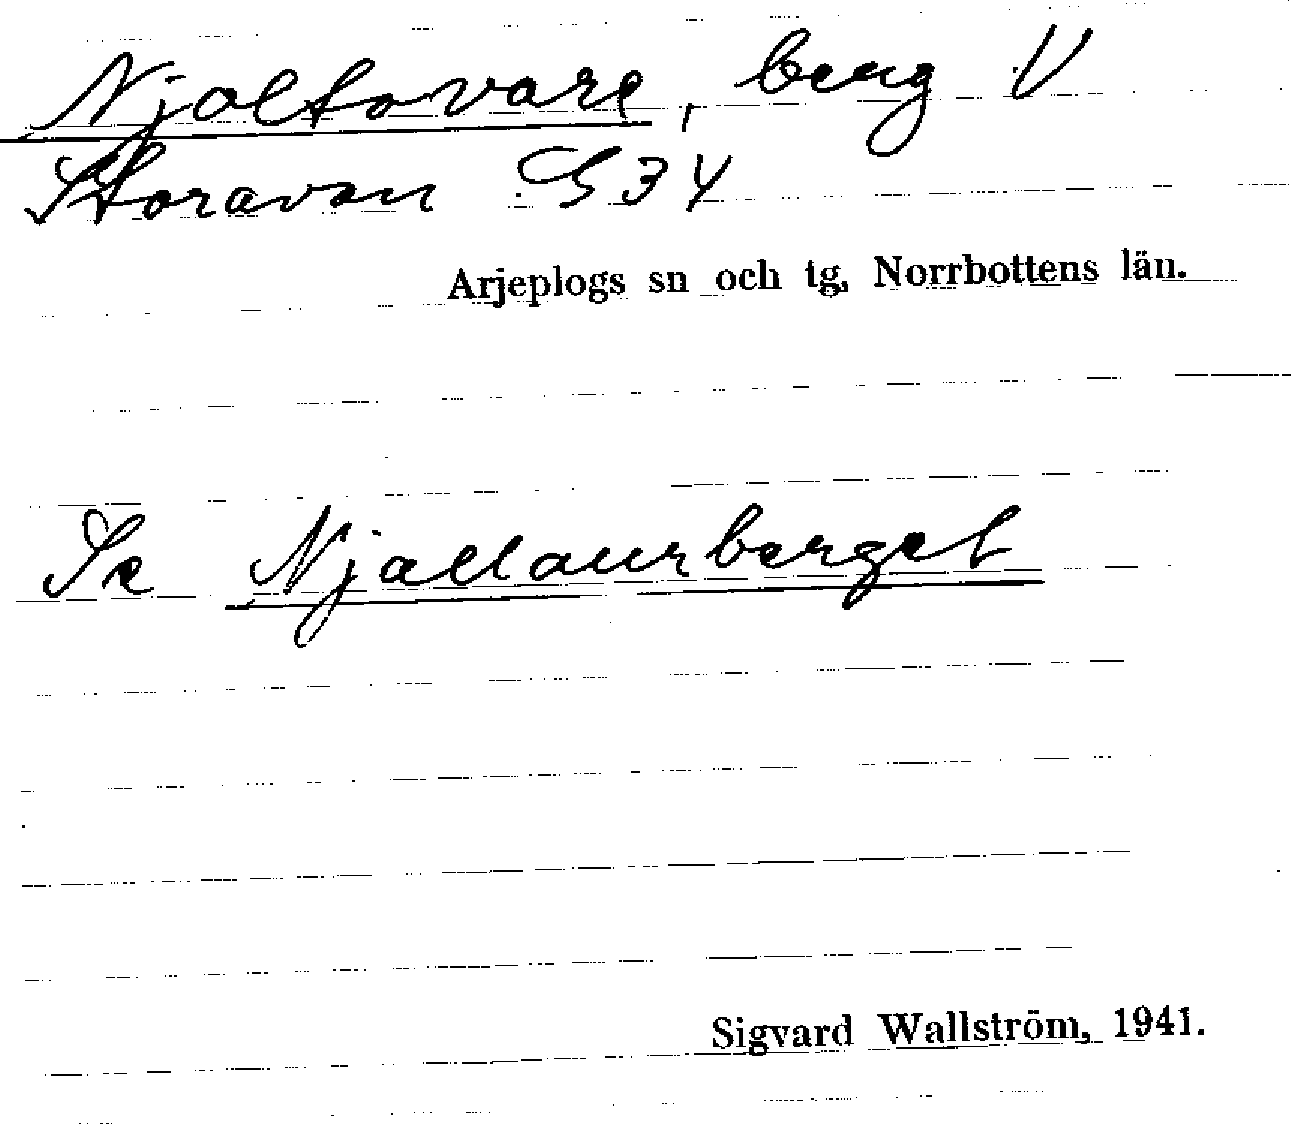 Njaltavare, berg V
Storavan S 34
Arjeplogs sn och tg, Norrbottens län.
Se Njallaurberget
Sigvard Wallström, 1941.